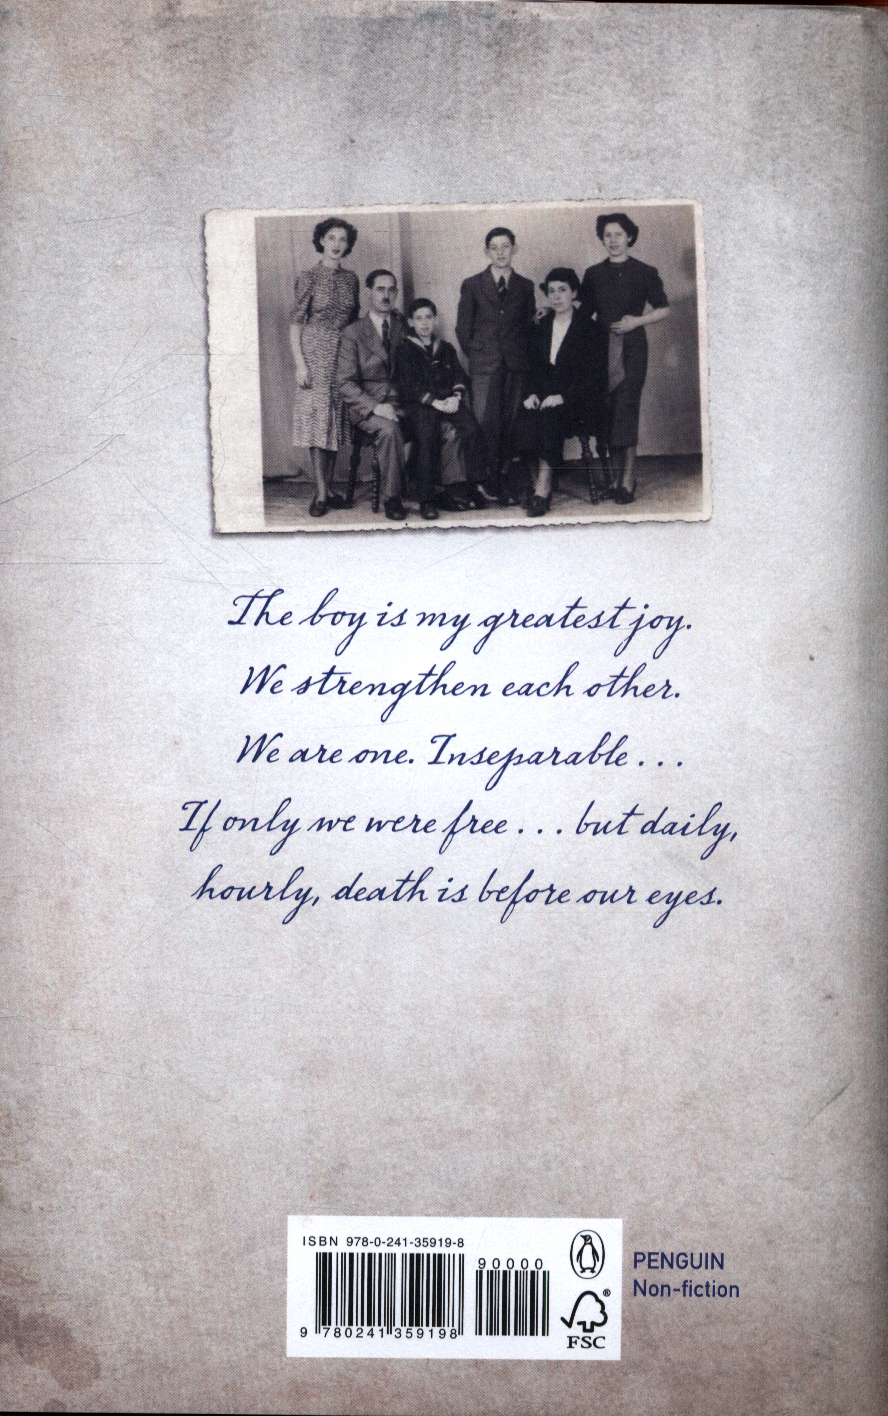 The boy is my greatest joy.
We strengthen each other.
We are one. Inseparable . . .
If only we were free . . . but daily,
hourly, death is before our eyes.
ISBN 978-0-241-35919-8
90000
9 780241 359198
FSC
®
PENGUIN
Non-fiction